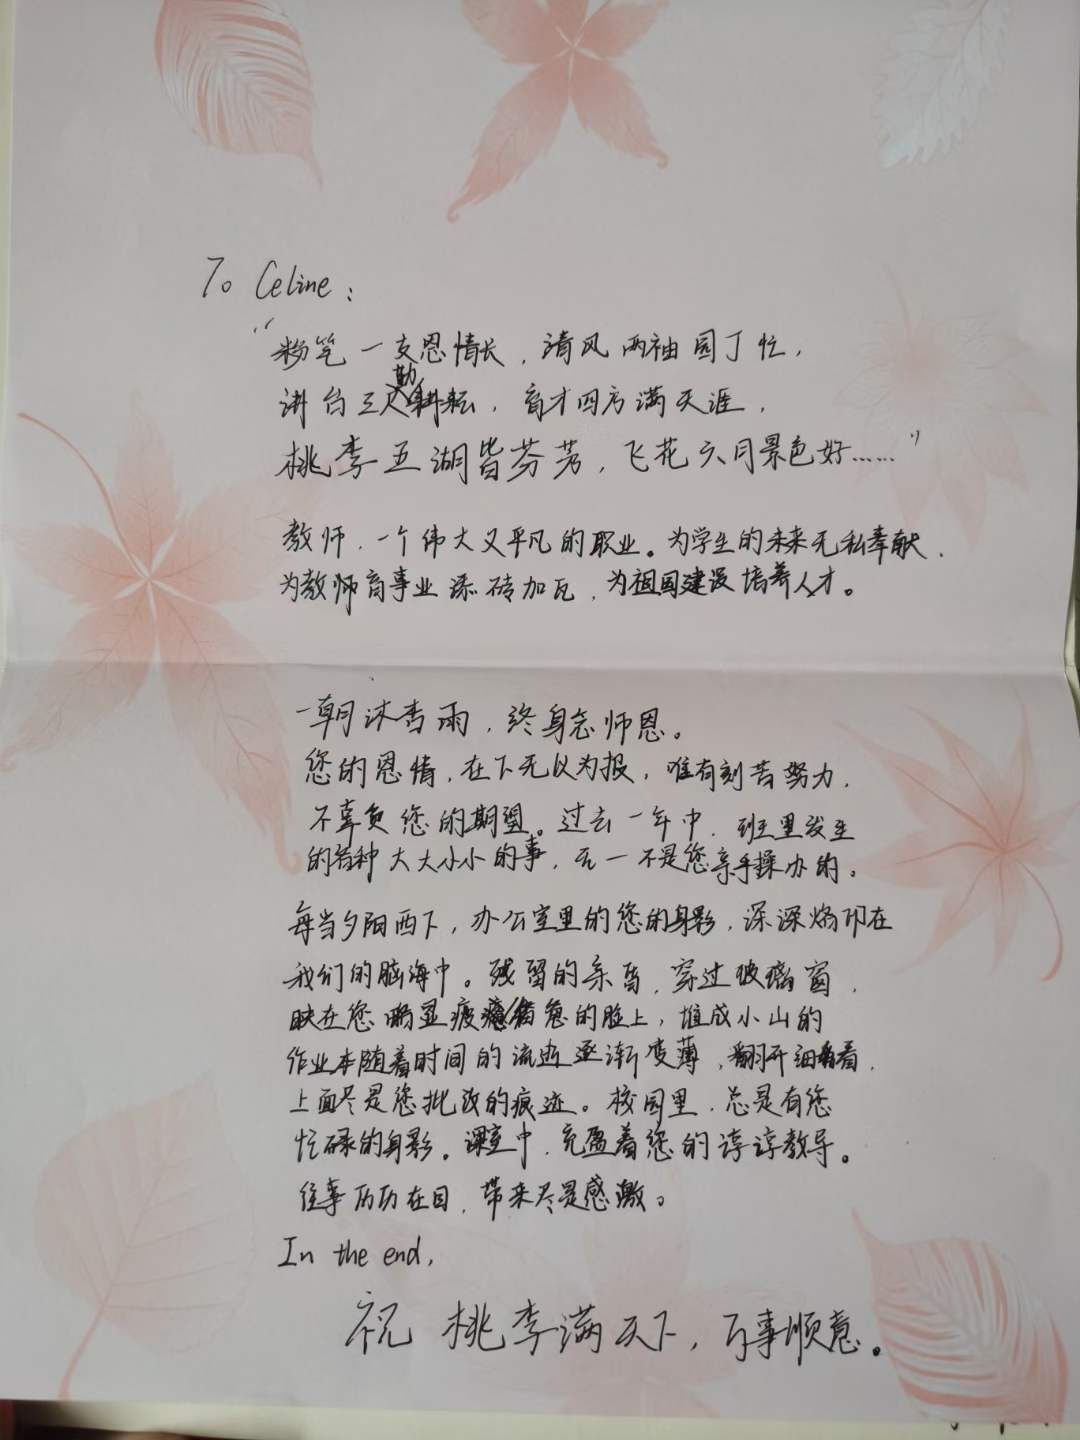 To Celine:
“粉笔一支恩情长，清风两袖园丁忙，
讲台三尺勤耕耘，育才四方满天涯，
桃李五湖皆芬芳，飞花六月景色好……”
教师，一个伟大又平凡的职业。为学生的未来无私奉献，
为教师育事业添砖加瓦，为祖国建设培养人才。
一朝沐杏雨，终身念师恩。
您的恩情，在下无以为报，唯有刻苦努力，
不辜负您的期望。过去一年中，班里发生
的各种大大小小的事，无一不是您亲手操办的。
每当夕阳西下，办公室里的您的身影，深深烙印在
我们的脑海中。残留的余晖，穿过玻璃窗，
映在您略显疲惫的脸上，堆成小山的
作业本随着时间的流逝逐渐变薄，翻开细看，
上面尽是您批改的痕迹。校园里，总是有您
忙碌的身影。课堂中，充盈着您的谆谆教导。
往事历历在目，带来尽是感激。
In the end,
祝 桃李满天下，万事顺意。